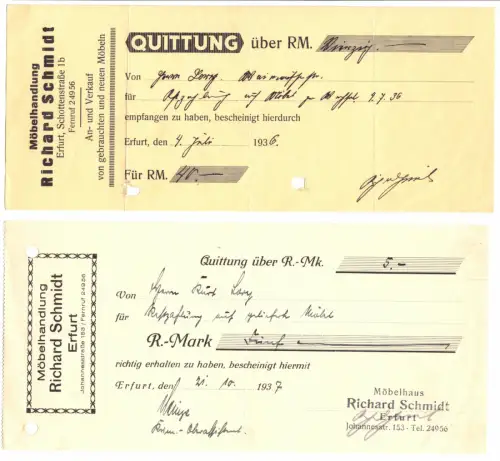 Möbelhandlung
Richard Schmidt
Erfurt, Schottenstraße 1b
Fernruf 24956
An- und Verkauf
von gebrauchten und neuen Möbeln
QUITTUNG über RM. Vierzig.—
Von Herrn Lorz,
für
empfangen zu haben, bescheinigt hierdurch
Erfurt, den 4. Juli 1936.
Für RM. 40.—
Möbelhandlung
Richard Schmidt
Erfurt
Johannesstraße 153 / Fernruf 24956
Quittung über R.-Mk. 5.-
Von Herrn Kurt Lorz
für Restzahlung auf gelieferte Möbel
R.-Mark Fünf
richtig erhalten zu haben, bescheinigt hiermit
Erfurt, den 21. 10. 1937
Möbelhaus
Richard Schmidt
Erfurt
Johannesstr. 153 - Tel. 24956